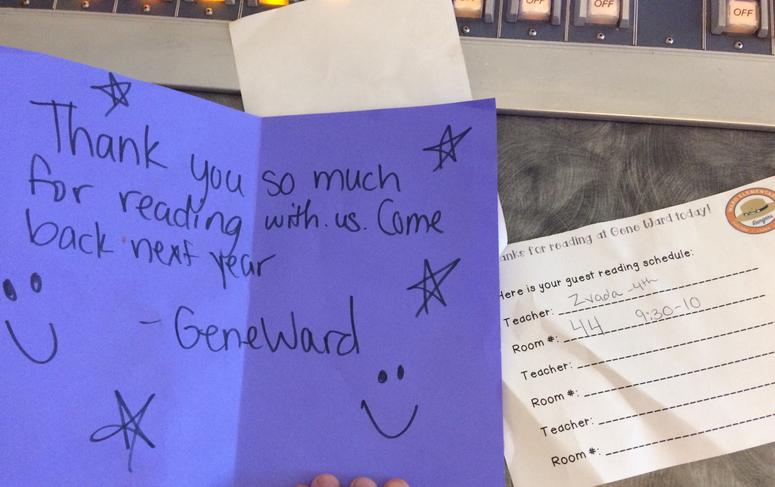 OFF
OFF
OFF
OFF
Thank you so much
for reading with us. Come
back next year
- GeneWard
anks for reading at Gene Ward today!
Here is your guest reading schedule:
Teacher: Zvada - 4th
Room #: 44 9:30-10
Teacher:
Room #:
Teacher:
Room #: